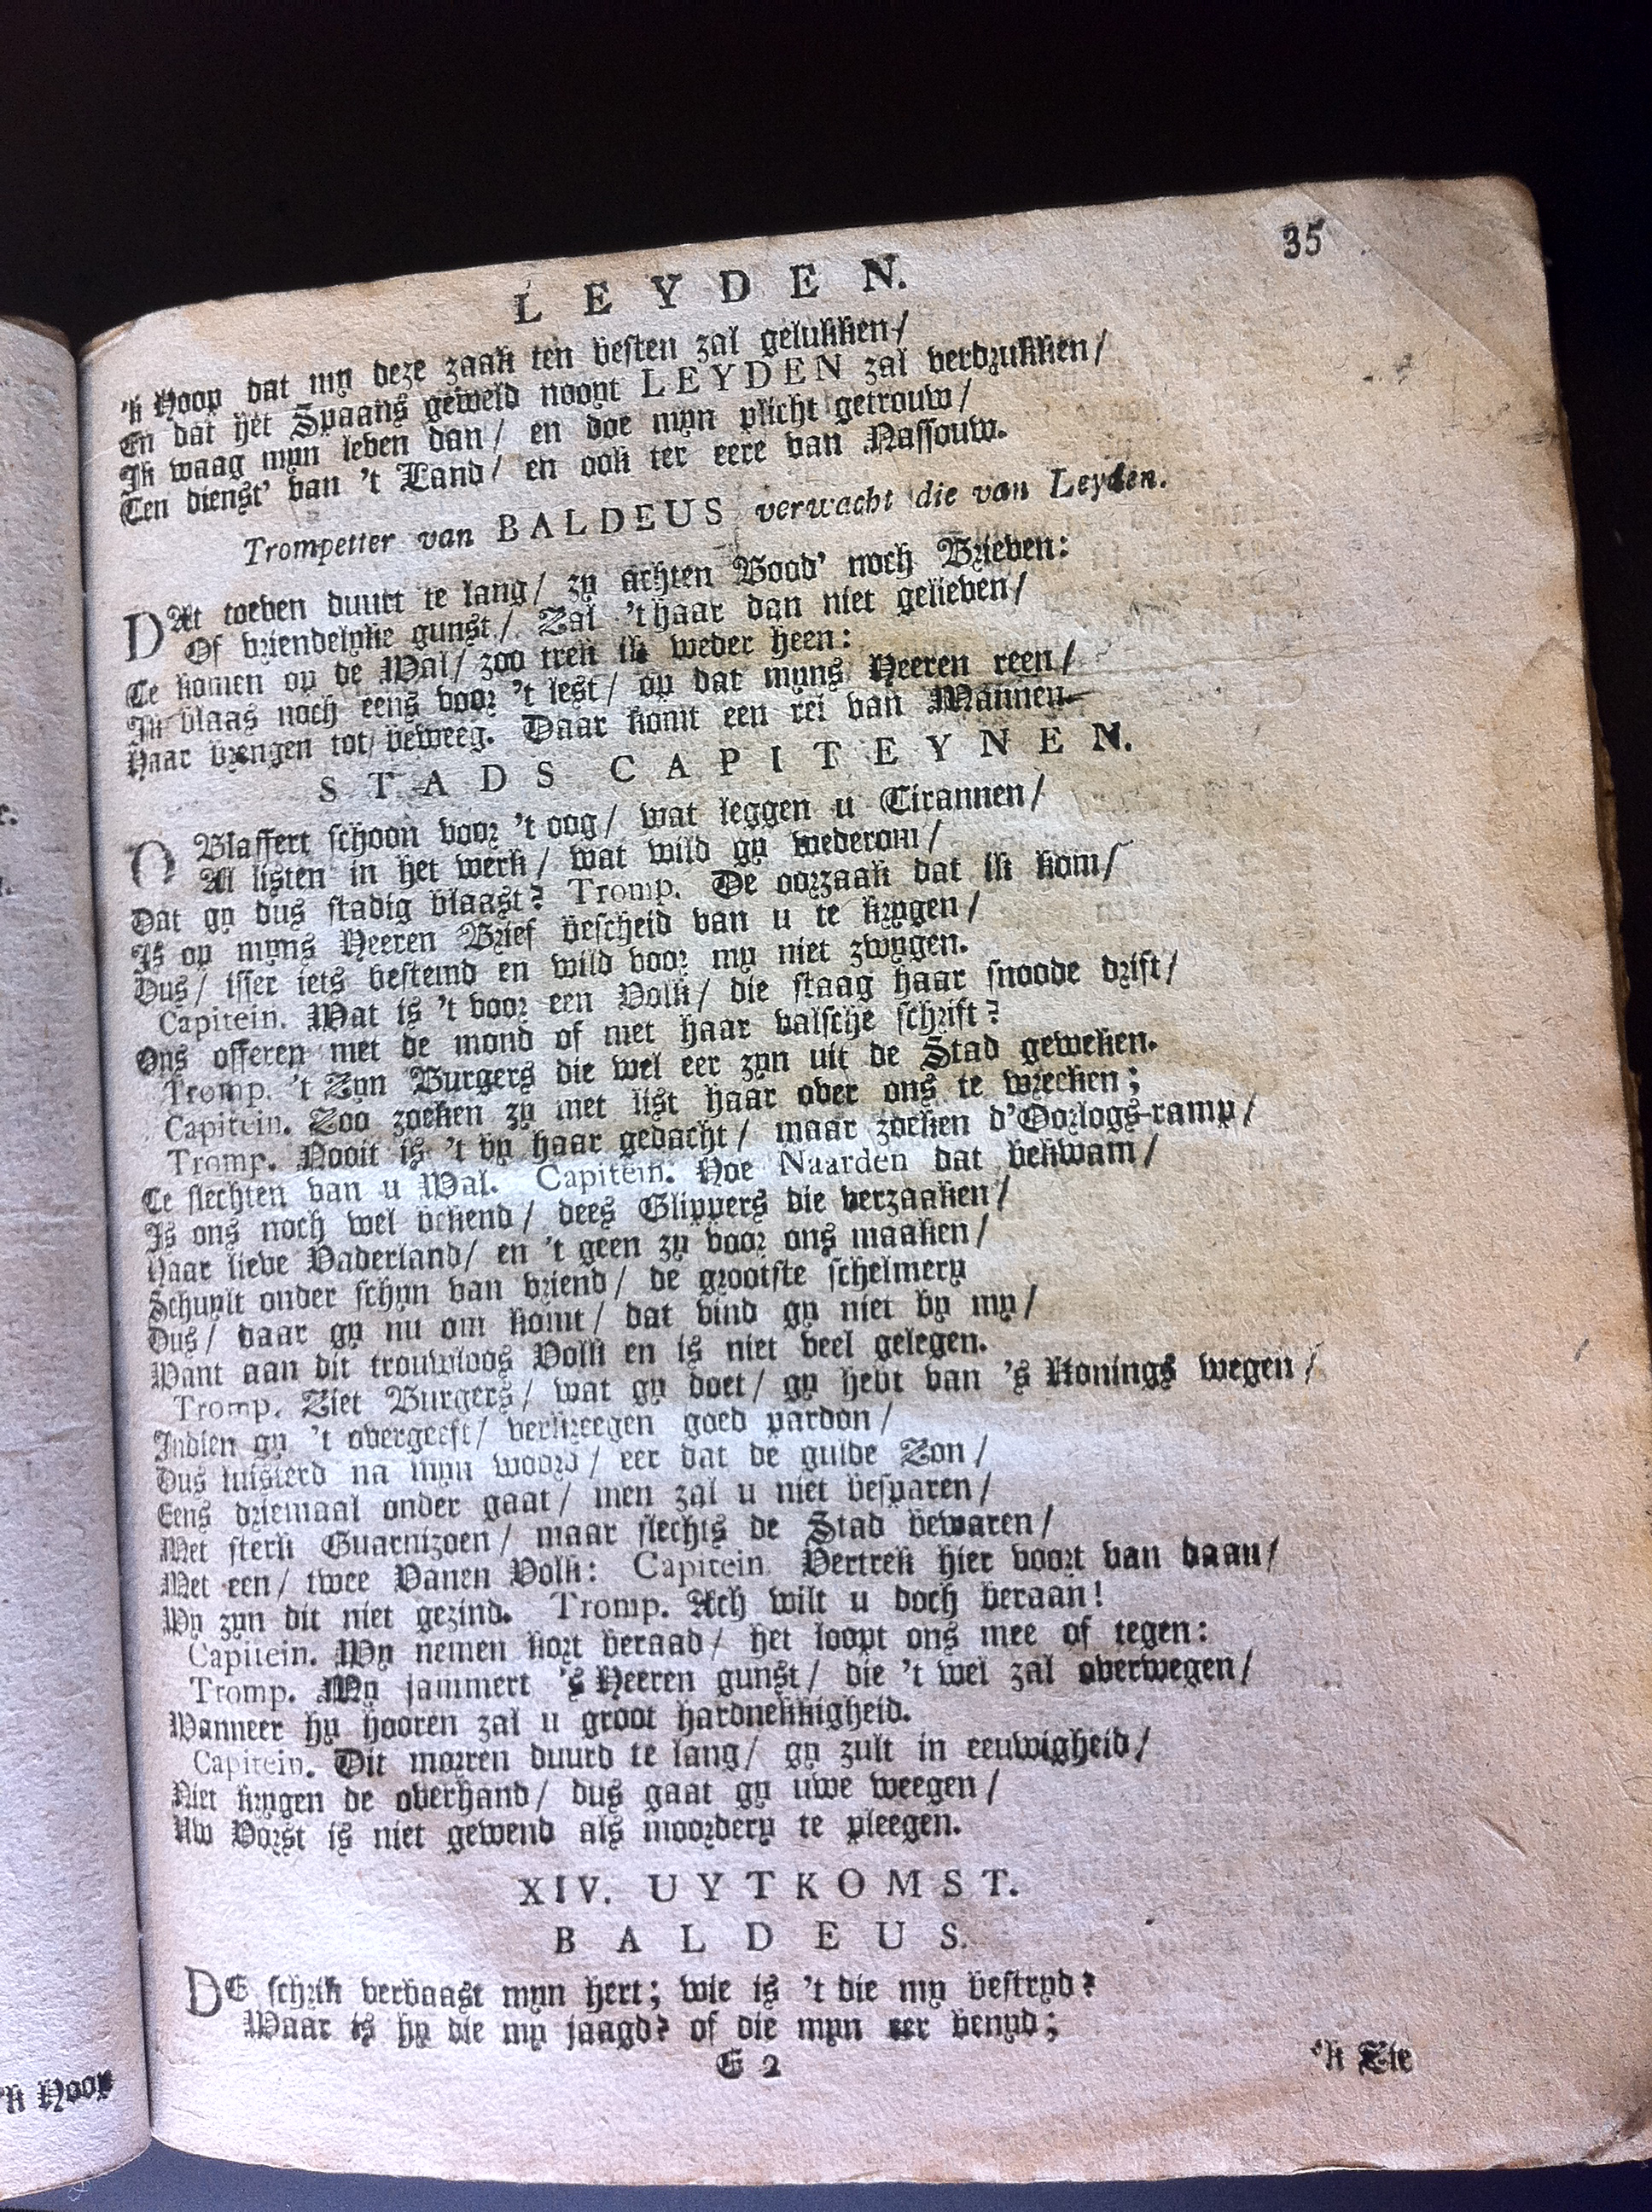 35
LEYDEN.
'k Hoop dat my deze zaak ten besten zal gelukken/
En dat het Spaans geweld nooyt LEYDEN zal verdrukken/
Ik waag myn leven dan/ en doe myn plicht getrouw/
Ten dienst' van 't Land/ en ook ter eere van Nassouw.
Trompetter van BALDEUS verwacht die van Leyden.
DAt toeven duurt te lang/ zy achten Bood' noch Brieven:
Of vriendelyke gunst/ Zal 't haar dan niet gelieven/
Te komen op de Wal/ zoo trek ik weder heen:
Ik blaas noch eens voor 't lest/ op dat myns Heeren reen/
Haar brengen tot beweeg. Daar komt een rei van Mannen
STADS CAPITEYNEN.
O Blaffert schoon voor 't oog/ wat leggen u Tirannen/
Al listen in het werk/ wat wild gy wederom/
Dat gy dus stadig blaast? Tromp. De oorzaak dat ik kom/
Is op myns Heeren Brief bescheid van u te krygen/
Dus/ isser iets bestemd en wild voor my niet zwygen.
Capitein. Wat is 't voor een Volk/ die staag haar snoode drift/
Ons offeren met de mond of met haar valsche schrift?
Tromp. 't Zyn Burgers die wel eer zyn uit de Stad geweken.
Capitein. Zoo zoeken zy met list haar over ons te wreeken;
Tromp. Nooit is 't by haar gedacht/ maar zoeken d'Oorlogs-ramp/
Te slechten van u Wal. Capitein. Hoe Naarden dat bekwam/
Is ons noch wel bekend/ dees Glippers die verzaaken/
Haar lieve Vaderland/ en 't geen zy voor ons maaken/
Schuylt onder schyn van vriend/ de grootste schelmery
Dus/ daar gy nu om komt/ dat vind gy niet by my/
Want aan dit trouwloos Volk en is niet veel gelegen.
Tromp. Ziet Burgers/ wat gy doet/ gy hebt van 's Konings wegen/
Indien gy 't overgeeft/ verkreegen goed pardon/
Dus luisterd na myn woord/ eer dat de gulde Zon/
Eens driemaal onder gaat/ men zal u niet besparen/
Met sterk Guarnizoen/ maar slechts de Stad bewaren/
Met een/ twee Vanen Volk: Capitein. Vertrek hier voort van daan/
Wy zyn dit niet gezind. Tromp. Ach wilt u doch beraan!
Capitein. Wy nemen kort beraad/ het loopt ons mee of tegen:
Tromp. My jammert 's Heeren gunst/ die 't wel zal overwegen/
Wanneer hy hooren zal u groot hardnekkigheid.
Capitein. Dit morren duurd te lang/ gy zult in eeuwigheid/
Niet krygen de overhand/ dus gaat gy uwe weegen/
Uw Vorst is niet gewend als moordery te pleegen.
XIV. UYTKOMST.
BALDEUS.
DE schrik verbaast myn hert; wie is 't die my bestryd?
Waar is hy die my jaagd? of die myn eer benyd;
E 2
'k Zie
'k Hoop